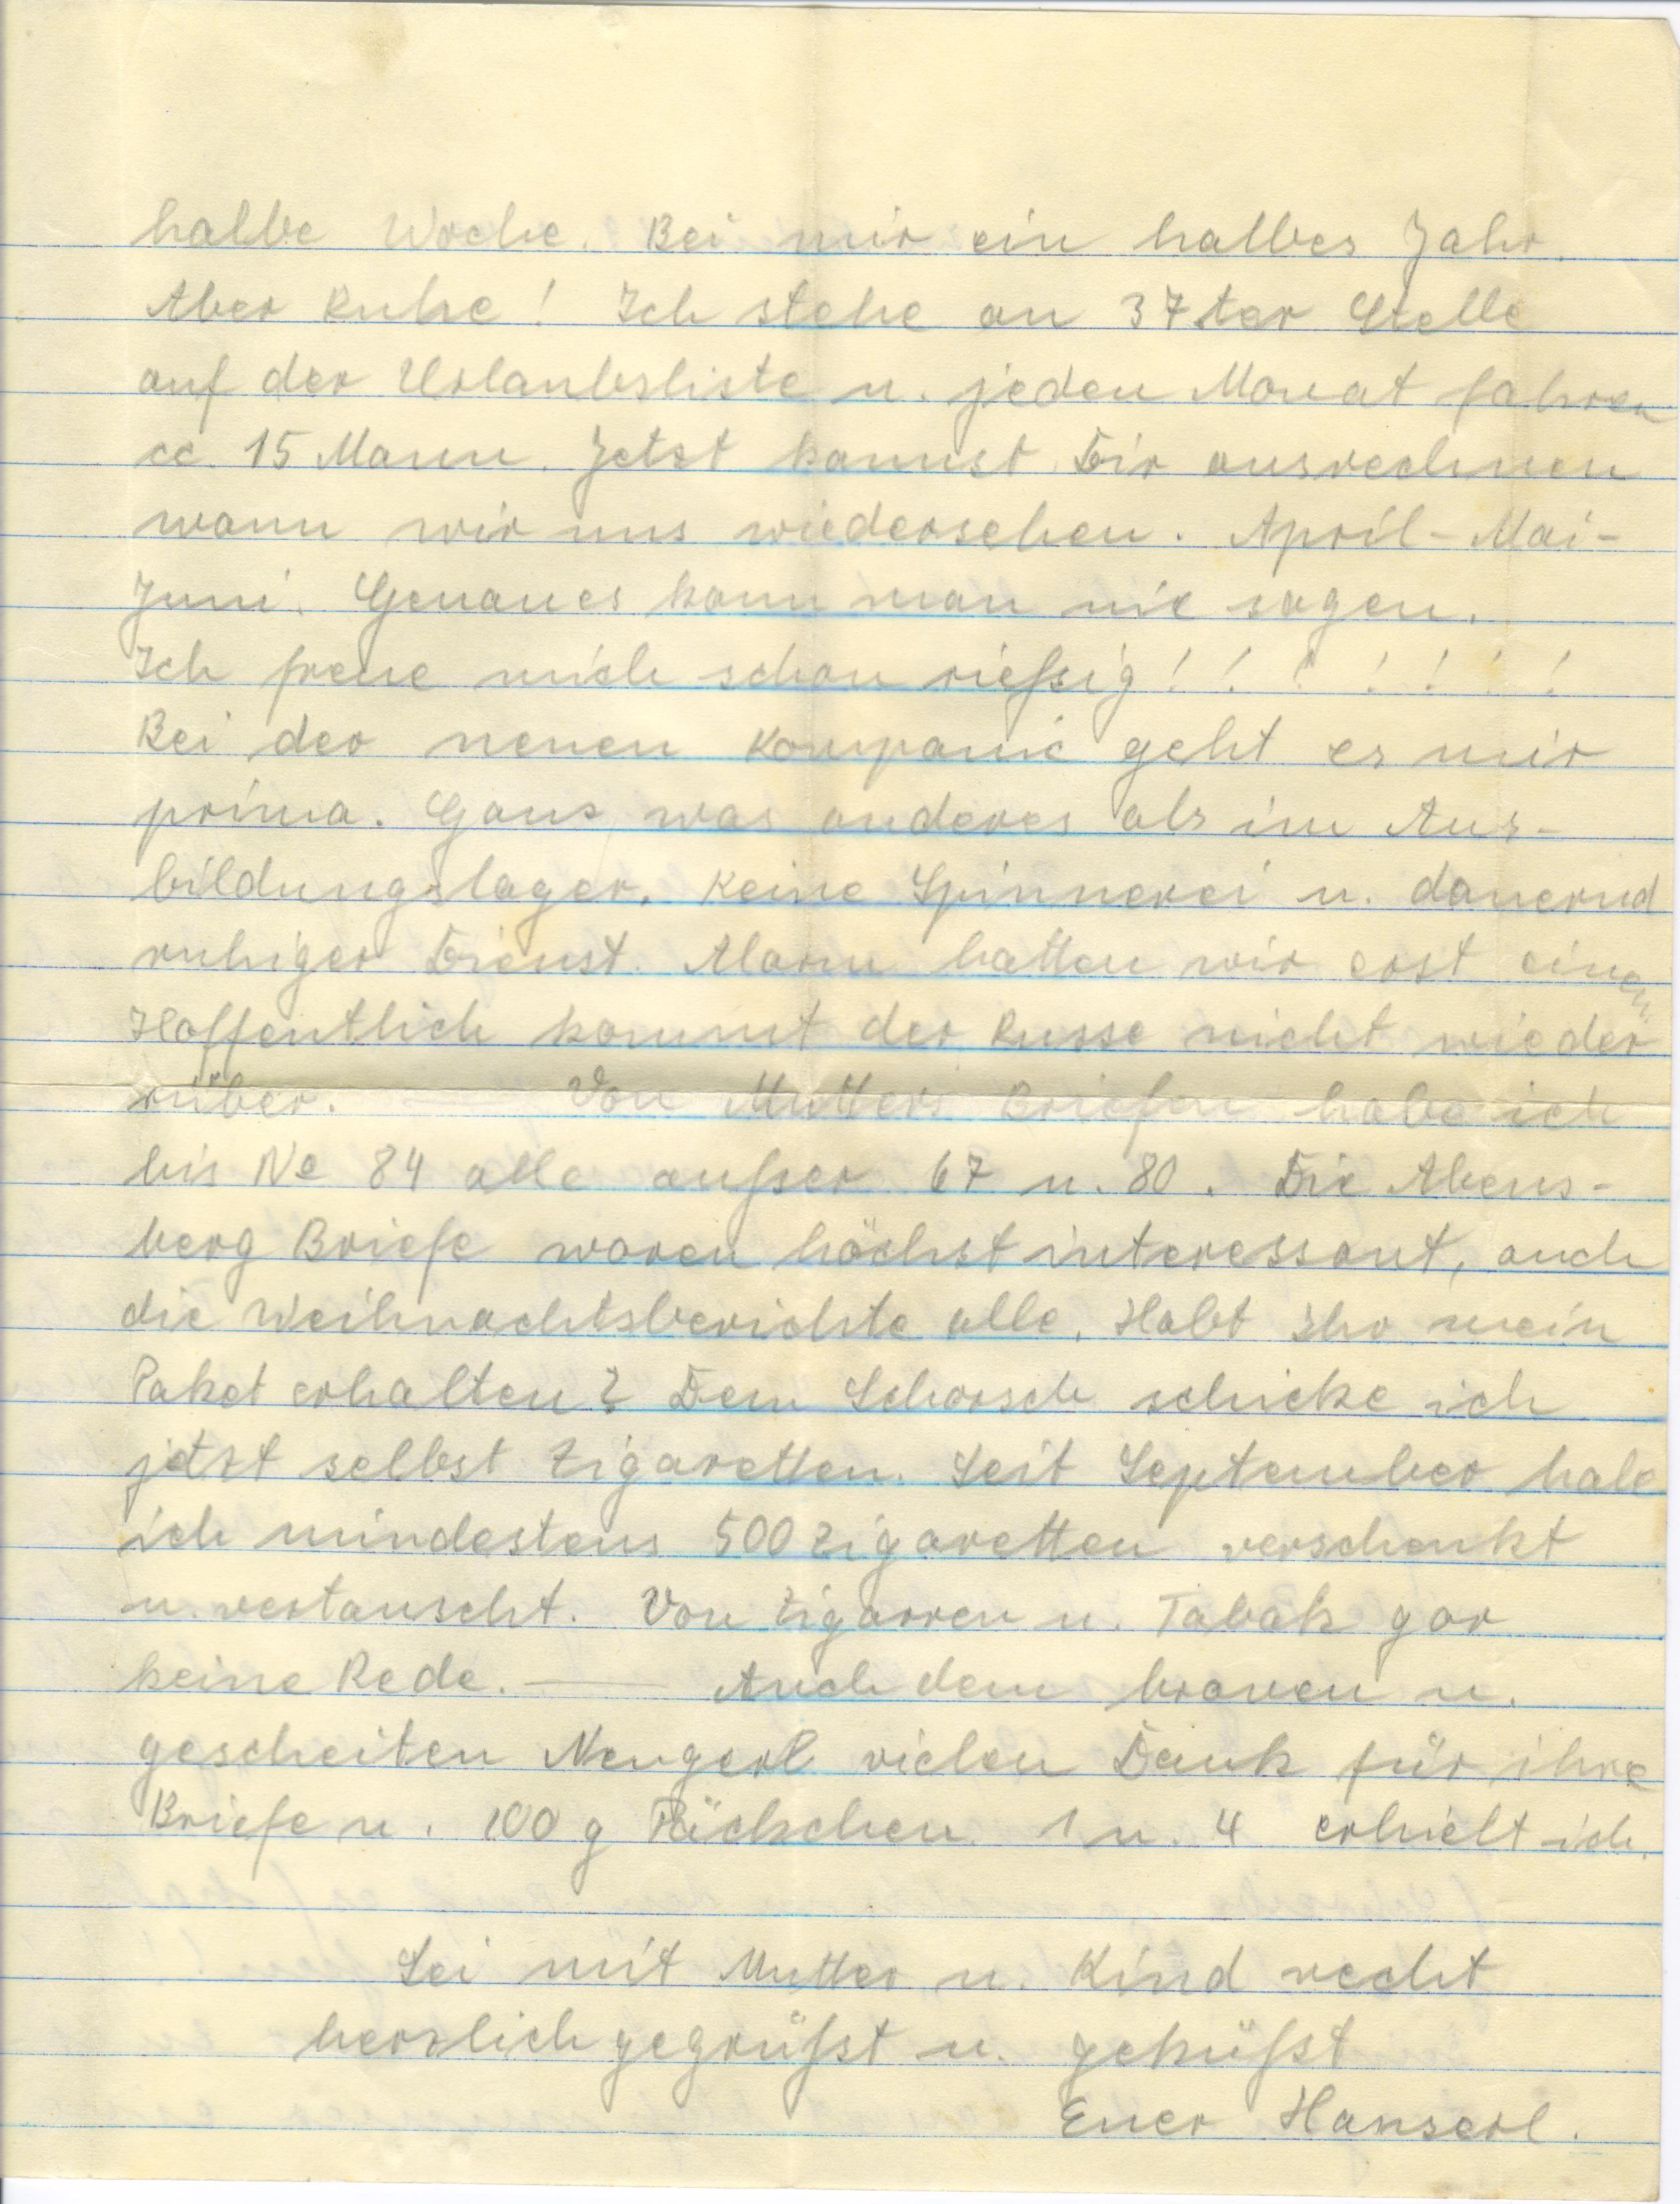 halbe Woche. Bei mir ein halbes Jahr.
Aber Ruhe! Ich stehe an 37ter Stelle
auf der Urlaubsliste u. jeden Monat fahren
cc. 15 Mann. Jetzt kannst Dir ausrechnen
wann wir uns wiedersehen. April-Mai-
Juni. Genaues kann man nie sagen.
Ich freue mich schon rießig! ! ! ! ! ! !
Bei der neuen Kompanie geht es mir
prima. Ganz was anderes als im Aus-
bildungslager. Keine Spinnerei u. dauernd
ruhiger Dienst. Alarm hatten wir erst einen
Hoffentlich kommt der Russe nicht wieder
rüber. — Von Mutters Briefen habe ich
bis No 84 alle außer 67 u. 80. Die Abens-
berg Briefe waren höchst interessant, auch
die Weihnachtsberichte alle. Habt Ihr mein
Paket erhalten? Dem Schorsch schicke ich
jetzt selbst Zigaretten. Seit September habe
ich mindestens 500 Zigaretten verschenkt
u. vertauscht. Von Zigarren u. Tabak gar
keine Rede. — Auch dem braven u.
gescheiten Mengerl vielen Dank für ihre
Briefe u. 100 g Päckchen 1 u. 4 erhielt ich.
Sei mit Mutter u. Kind recht
herzlich gegrüßt u. geküßt
Euer Hanserl.